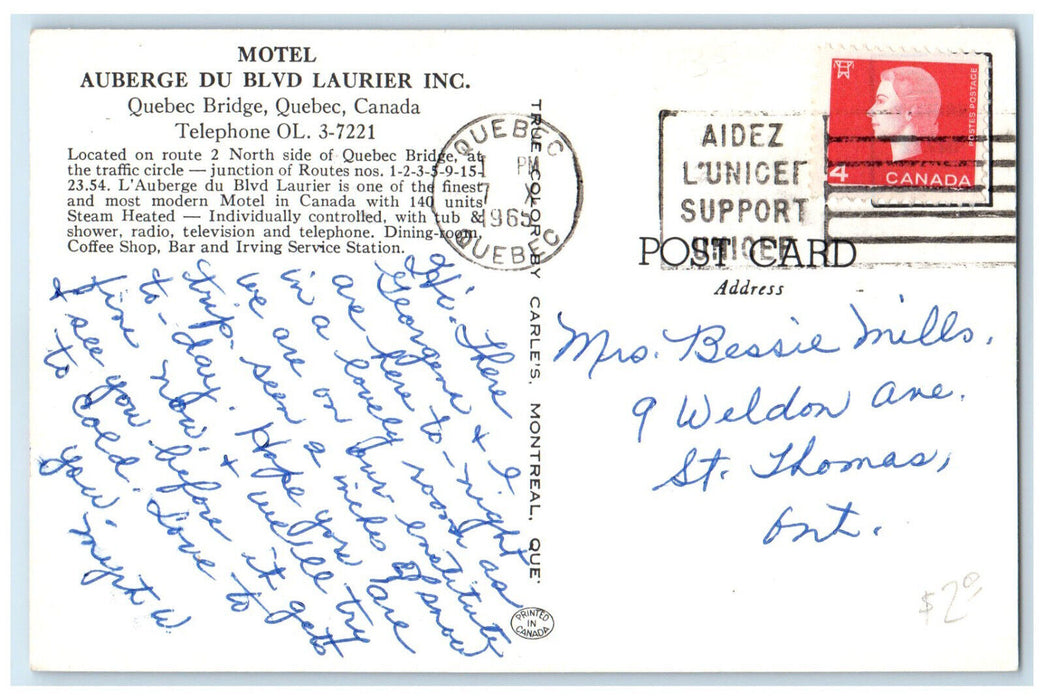 MOTEL
AUBERGE DU BLVD LAURIER INC.
Quebec Bridge, Quebec, Canada
Telephone OL. 3-7221
Located on route 2 North side of Quebec Bridge, at
the traffic circle — junction of Routes nos. 1-2-3-5-9-15-
23.54. L'Auberge du Blvd Laurier is one of the finest
and most modern Motel in Canada with 140 units
Steam Heated — Individually controlled, with tub &
shower, radio, television and telephone. Dining-room,
Coffee Shop, Bar and Irving Service Station.
Hi. There
Georgena & I
are here to-night
in a lovely room as
we are on our institute
trip. seen a inches of snow
to-day. Hope you are
fine now. & we'll try
& see you before it gets
to cold. Love to
you. Myrt W
TRUE COLOR BY CARLE'S, MONTREAL, QUE'
PRINTED
IN
CANADA
QUEBEC
PM
7 X
1965
QUEBEC
AIDEZ
L'UNICEF
SUPPORT
UNICEF
POSTES POSTAGE
4
CANADA
POST CARD
Address
Mrs. Bessie Mills.
9 Weldon Ave.
St. Thomas,
Ont.
$2.00